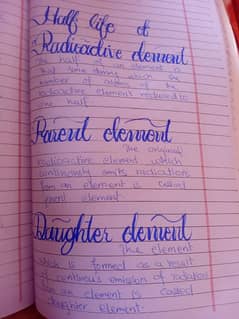 Half life of
Radioactive element
The half of an element is
that time during which the
number of of the
radioactive element reduced to
the half
Parent element
The original
radioactive element which
continously emits radiations
from an element is called
parent element
Daughter element
The element
which is formed as a result
of continous emission of radiation
from an element is called
daughter element.